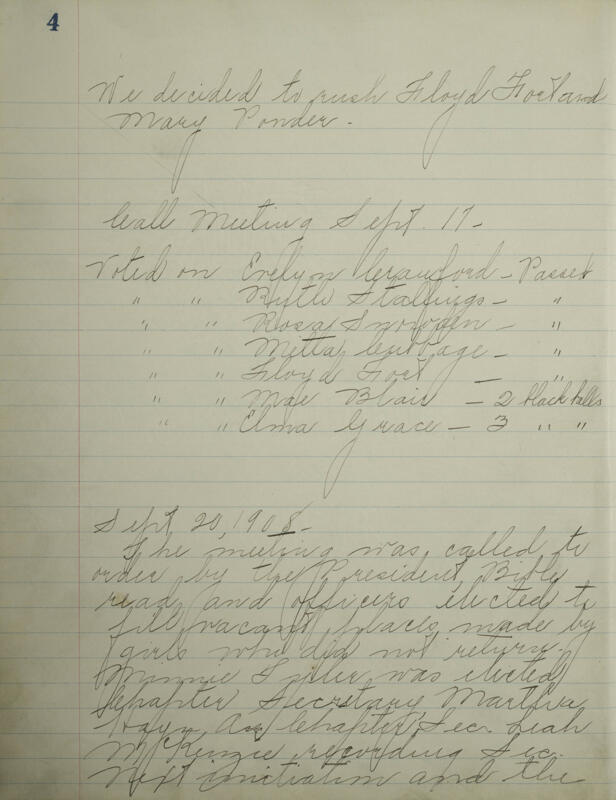 4
We decided to rush Floyd Fort and
Mary Ponder.
Call Meeting Sept. 17-
Voted on Evelyn Crawford - Passed
" " Ruth Stallings - "
" " Rosa Snowden - "
" " Metta Cubbage - "
" " Floyd Fort - "
" " Mae Blair - 2 black balls
" " Elma Grace - 3 " "
Sept 20, 1908-
The meeting was called to
order by the President, Bible
read and officers elected to
fill vacant places made by
girls who did not return.
Minnie was elected
Chapter Secretary, Martha
Chapter Sec. Leah
McKenzie recording Sec.
Next initiation and the